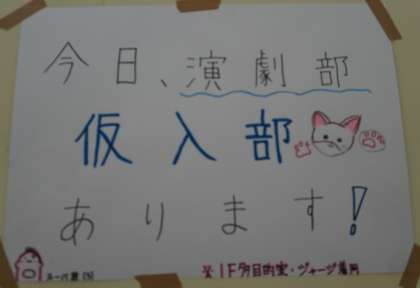 今日、演劇部
仮入部
あります!
1F多目的室・ジャージ着用